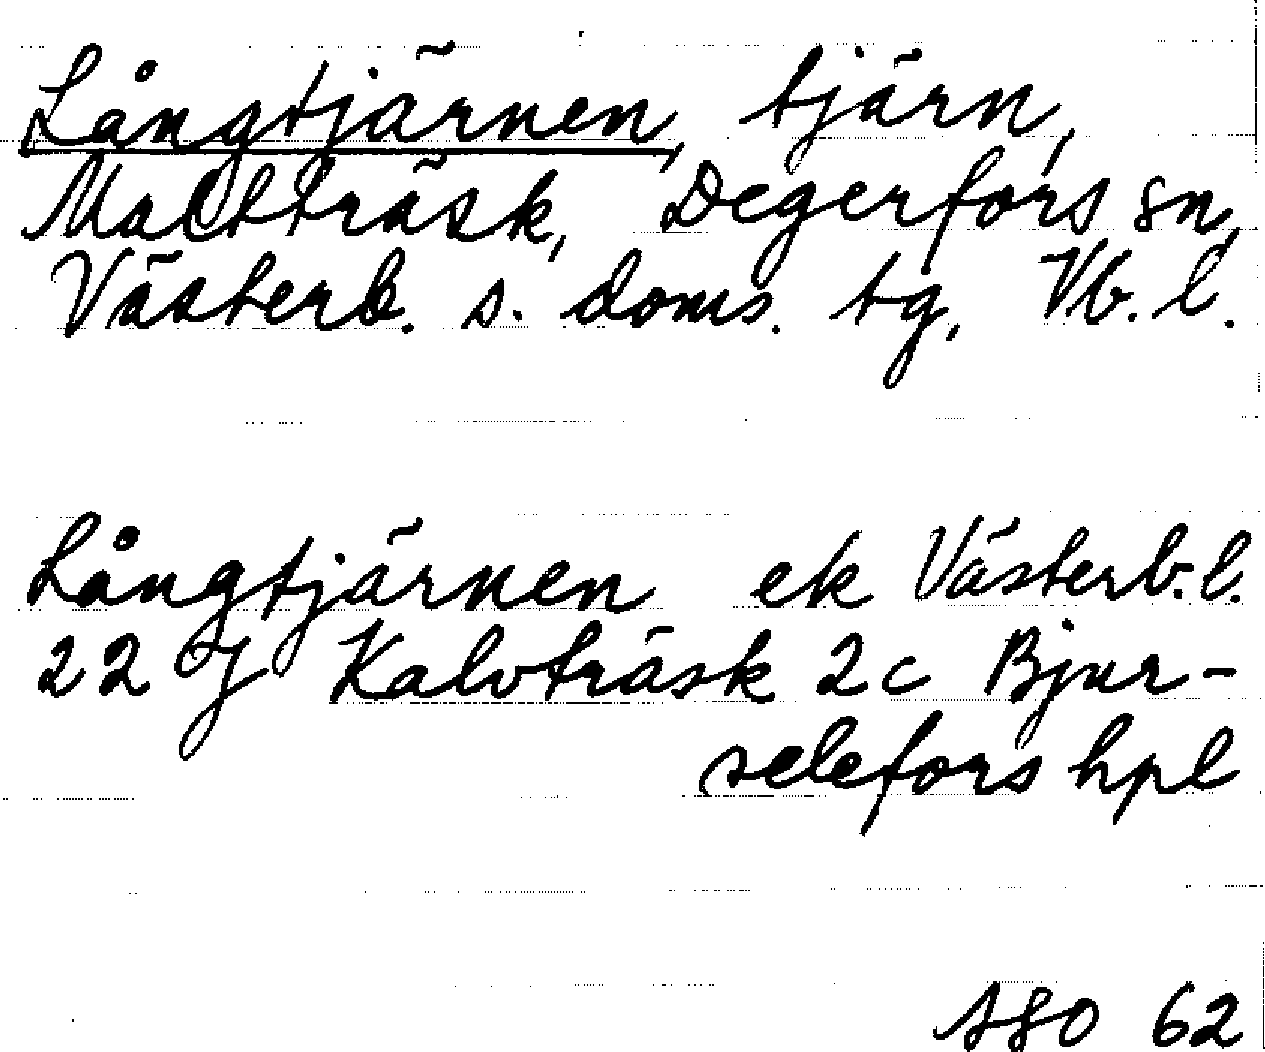 Långtjärnen, tjärn,
Maltträsk, Degerfors sn,
Västerb. s. doms. tg, Vb. l.
Långtjärnen ek Västerb. l.
22 J Kalvträsk 2c Bjur-
selefors hpl
SSO 62